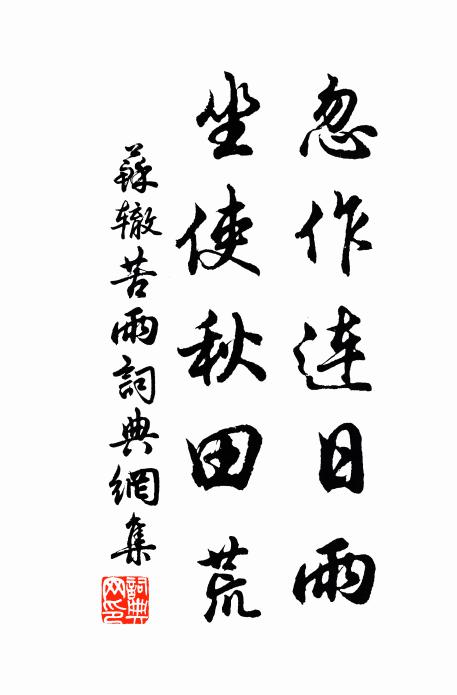 忽作连日雨
坐使秋田荒
蘇辙苦雨詞典網集
詞典